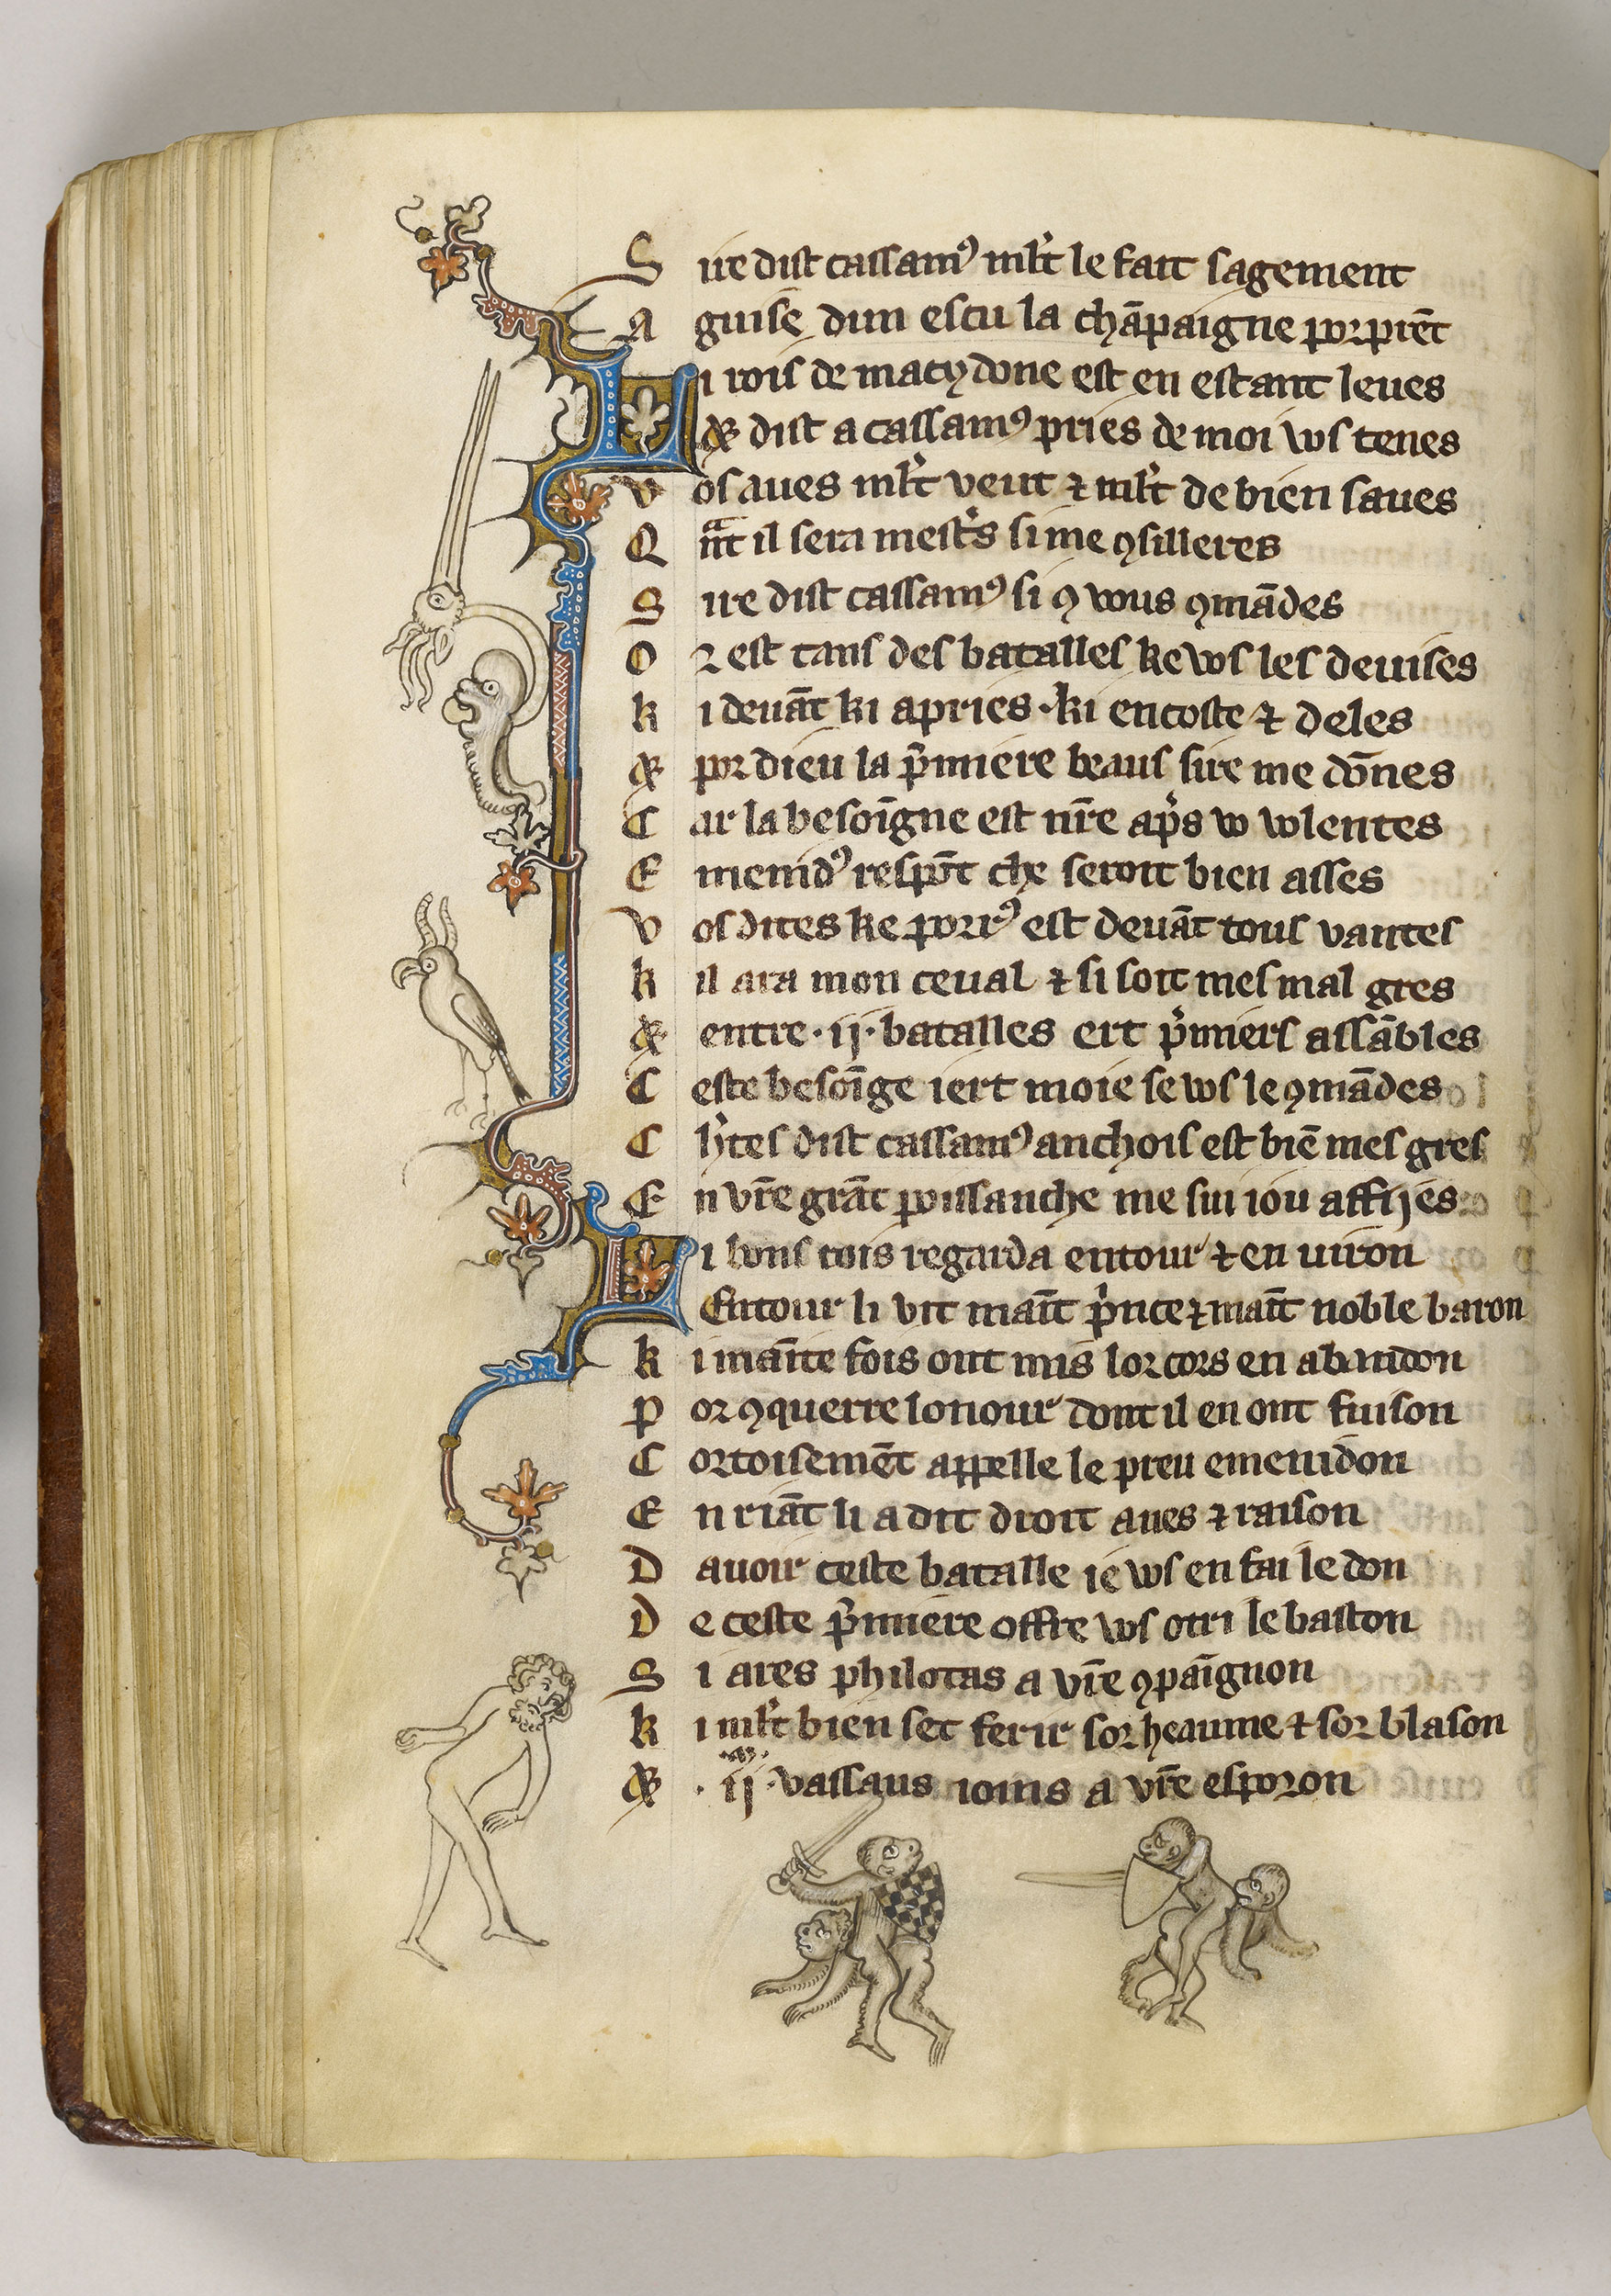 Sire dist cassamꝰ ml̓t le fait sagement
A guise dun escu la chāpaigne porprēt
Li rois de macydone est en estant leues
Et dist a cassamꝰ pries de moi vos tenes
Vos aues ml̓t veut ⁊ ml̓t de bien saues
Qᵃnt il sera mest̓s si me ꝯsilleres
Sire dist cassamꝰ si ꝯ vous ꝯmādes
Or est tans des batalles ke vos les deuises
Ki deuāt ki apries · ki encoste ⁊ deles
Et por dieu la p̓miere beaus sire me dōnes
Car la besoīgne est nr̄e ap̓s vo volentes
Emenidꝰ respōt che seroit bien asses
Vos dites ke porrꝰ est deuāt tous vantes
Kil ara mon ceual ⁊ si soit mes mal gres
Et entre · ij · batalles ert p̓miers assābles
Ceste besoīge iert moie se vos le ꝯmādes
Ch̓tes dist cassamꝰ anchois est biē mes gres
En vr̄e grāt poissanche me sui iou affijes
Li bons rois regarda entour ⁊ en uiron
Entour li vit maīt p̓nce ⁊ maīt noble baron
Ki maīte fois ont mis lor cors en abandon
Por ꝯquerre lonour dont il en ont fuison
Cortoisemēt appelle le preu emenidon
En riāt li a dit droit aues ⁊ raison
Dauoir ceste batalle ie vos en fai le don
De ceste p̓miere offre vos otri le baston
Si ares philotas a vr̄e ꝯpaīgnon
Ki ml̓t bien set ferir sor heaume ⁊ sor blason
Et · ij · vassaus ioins a vr̄e esporon